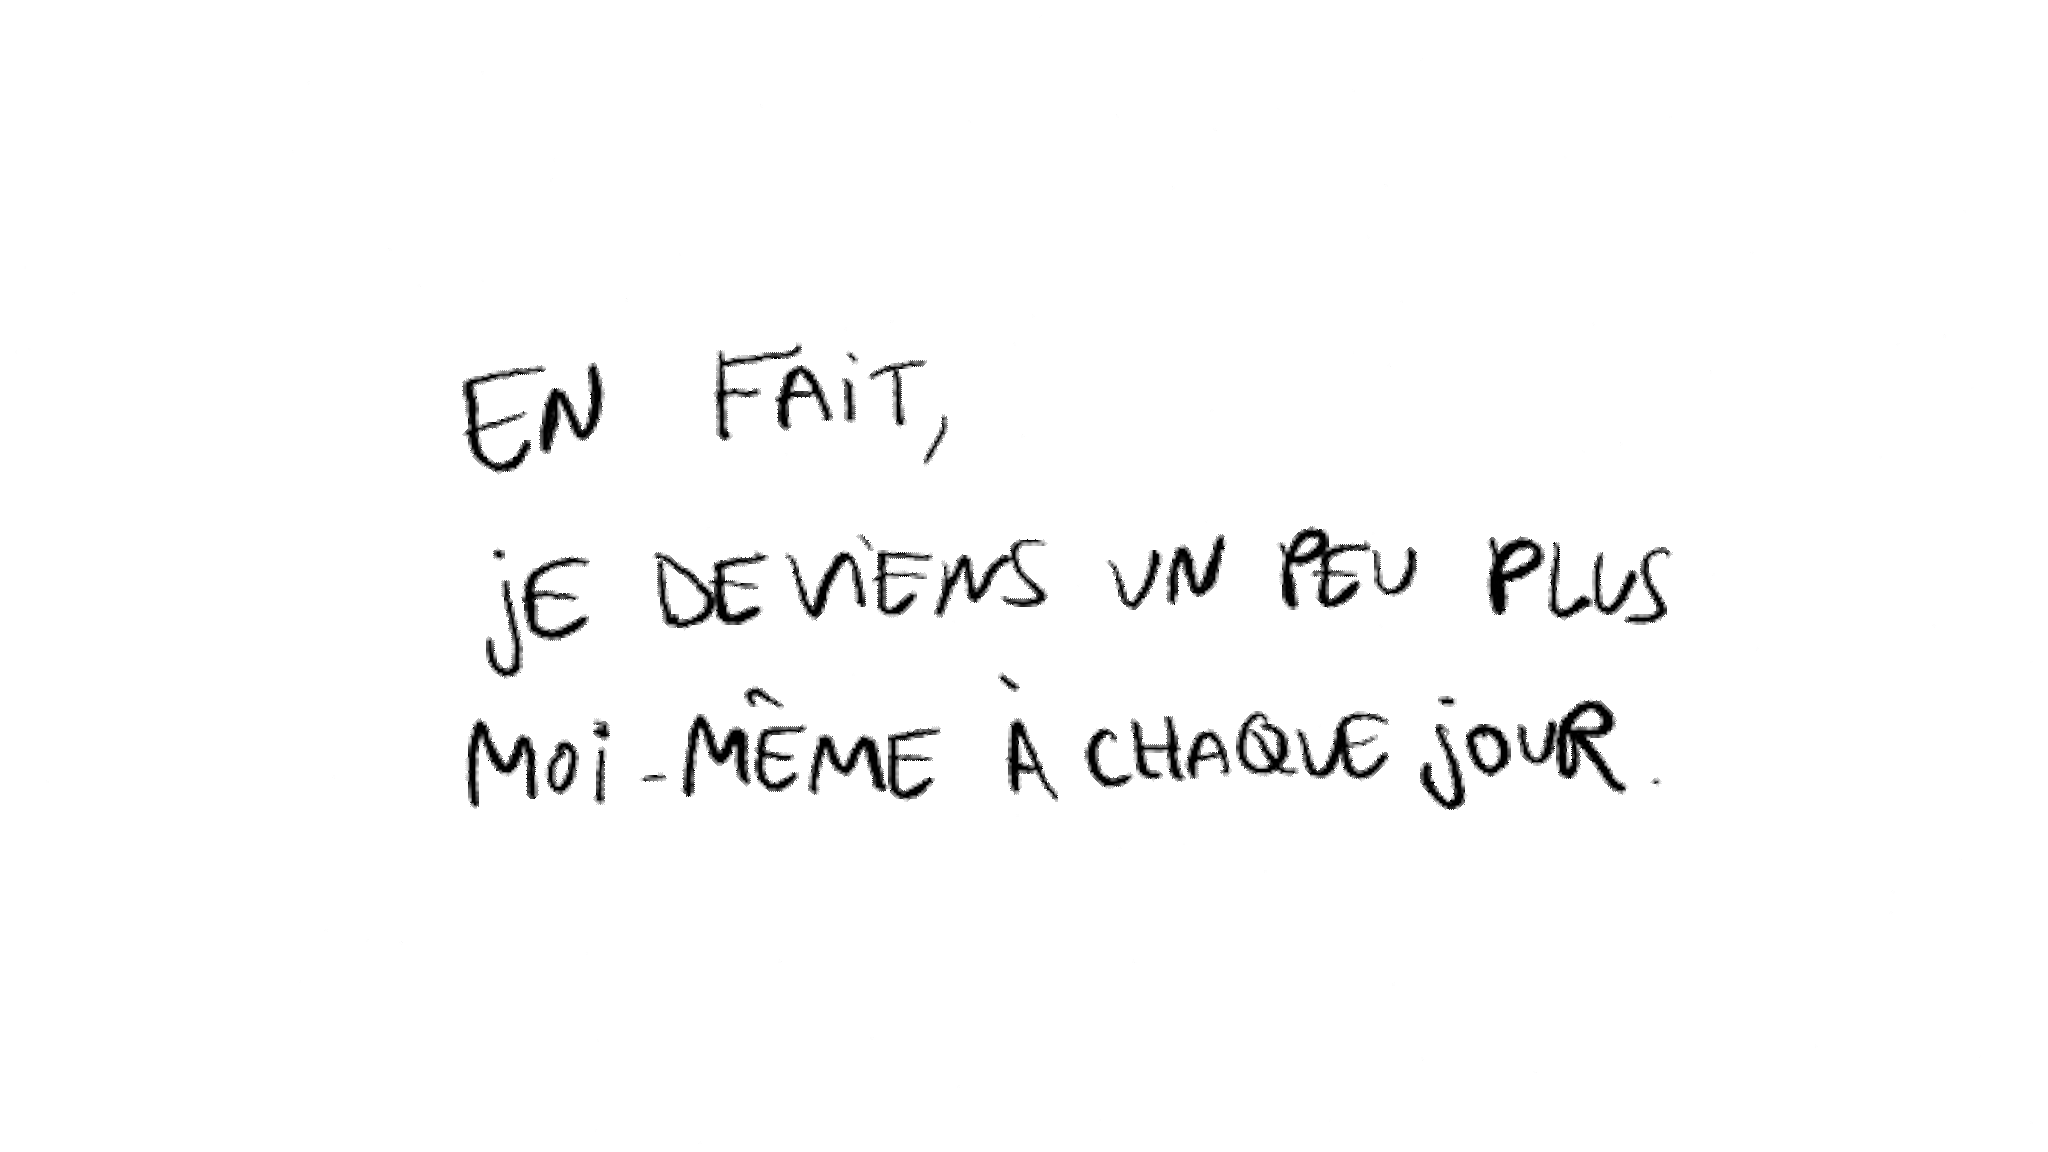 EN FAiT,
jE DEViENS UN PEU PLUS
MOi-MÊME À CHAQUE jOUR.